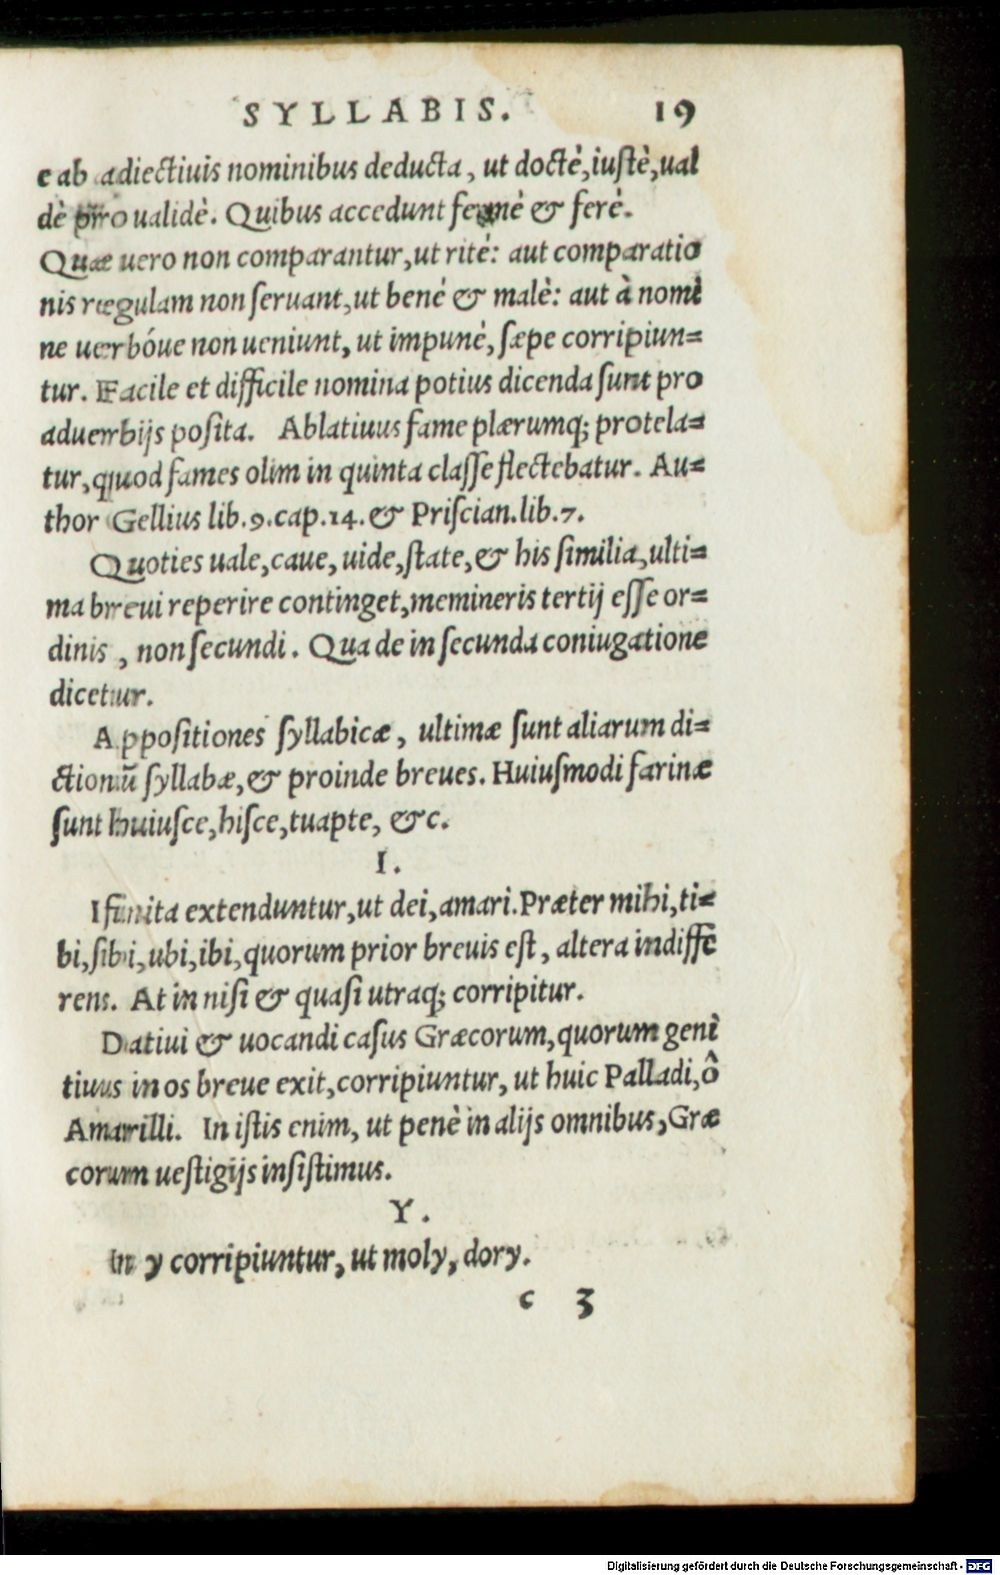 SYLLABIS. 19
e ab adiectiuis nominibus deducta, ut doctè, iustè, ual
dè pro ualidè. Quibus accedunt fermè & ferè.
Quæ uero non comparantur, ut rité: aut comparatio
nis regulam non seruant, ut bené & malè: aut à nomi
ne uerbóue non ueniunt, ut impunè, sæpe corripiun=
tur. Facile et difficile nomina potius dicenda sunt pro
aduerbijs posita. Ablatiuus fame plærumq; protela=
tur, quod fames olim in quinta classe flectebatur. Au=
thor Gellius lib.9.cap.14. & Priscian.lib.7.
Quoties uale, caue, uide, state, & his similia, ulti=
ma breui reperire continget, memineris tertij esse or=
dinis, non secundi. Qua de in secunda coniugatione
dicetur.
Appositiones syllabicæ, ultimæ sunt aliarum di=
ctionũ syllabæ, & proinde breues. Huiusmodi farinæ
sunt huiusce, hisce, tuapte, &c.
I.
I finita extenduntur, ut dei, amari. Præter mihi, ti=
bi, sibi, ubi, ibi, quorum prior breuis est, altera indiffe
rens. At in nisi & quasi utraq; corripitur.
Datiui & uocandi casus Græcorum, quorum geni
tiuus in os breue exit, corripiuntur, ut huic Palladi, ô
Amarilli. In istis enim, ut penè in alijs omnibus, Græ
corum uestigijs insistimus.
Y.
In y corripiuntur, ut moly, dory.
c 3
Digitalisierung gefördert durch die Deutsche Forschungsgemeinschaft - DFG